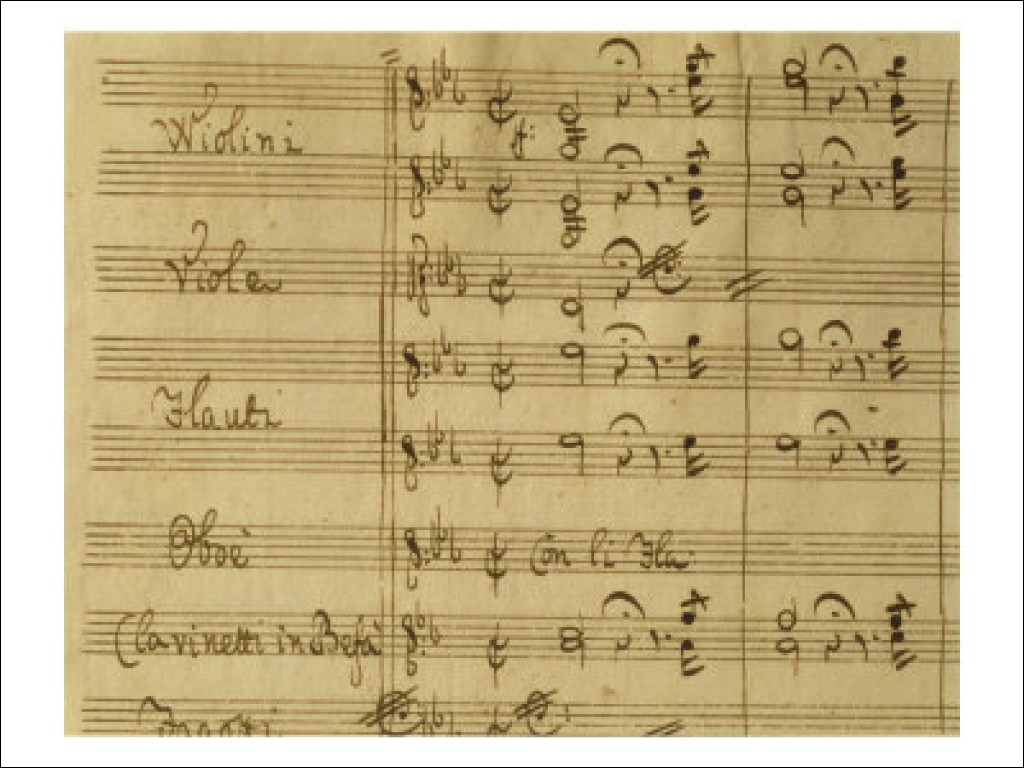 Violini
f:
Viole
Flauti
Oboè
Con li Fla:
Clarinetti in Befà
Fagotti